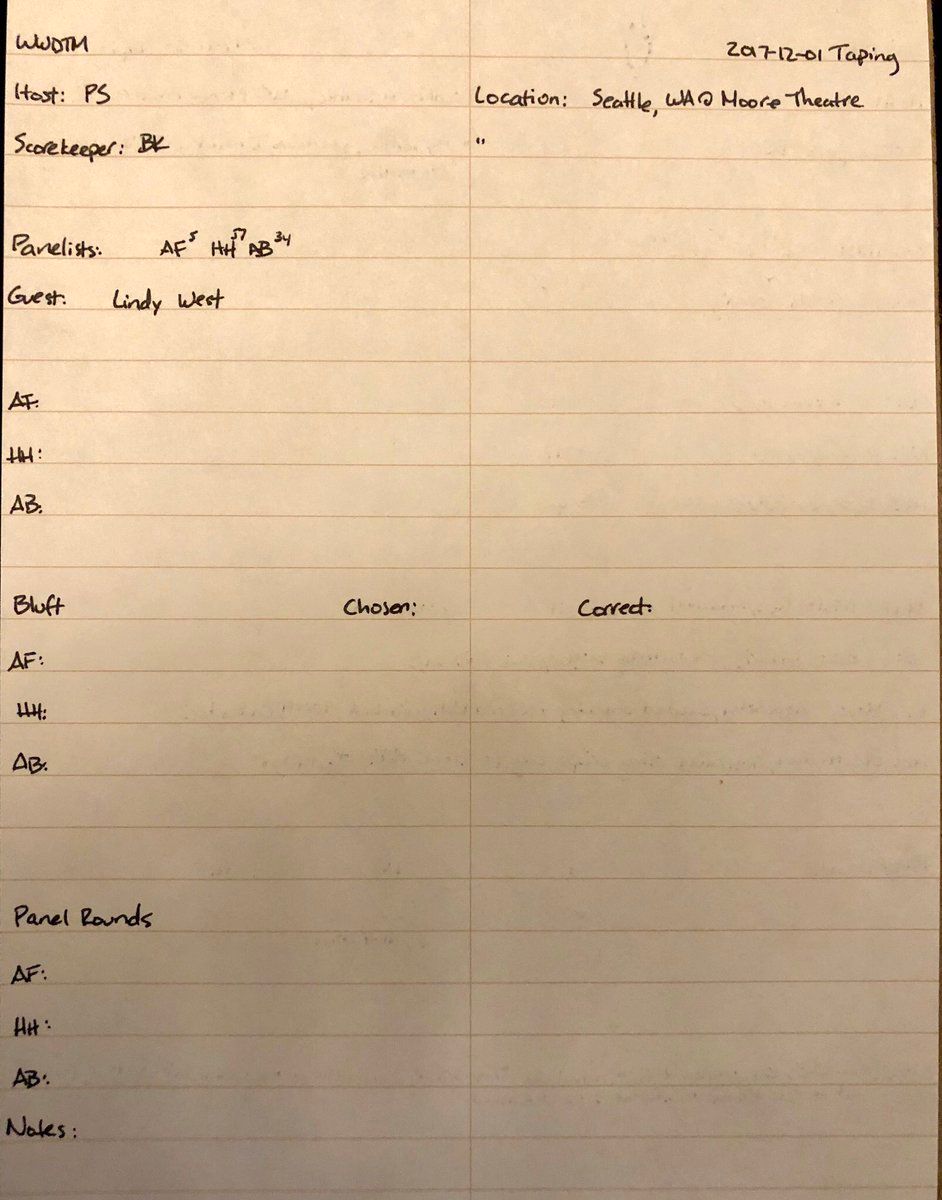 WWDTM 2017-12-01 Taping
Host: PS Location: Seattle, WA @ Moore Theatre
Scorekeeper: BK "
Panelists: AF⁵ HH⁵⁷ AB³⁴
Guest: Lindy West
AF:
HH:
AB:
Bluff Chosen: Correct:
AF:
HH:
AB:
Panel Rounds
AF:
HH:
AB:
Notes: